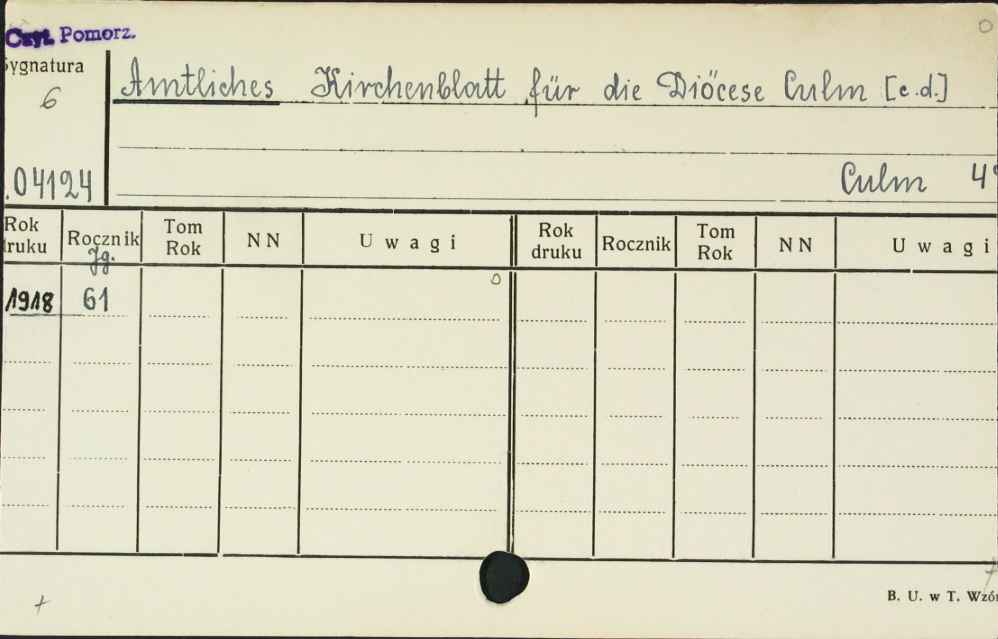 Czyt. Pomorz.
Sygnatura
6
.04124
Amtliches Kirchenblatt für die Diöcese Culm [c.d.]
Culm 4°
Rok druku Rocznik Tom Rok NN Uwagi Rok druku Rocznik Tom Rok NN Uwagi
Jg.
1918 61
B. U. w T. Wzór